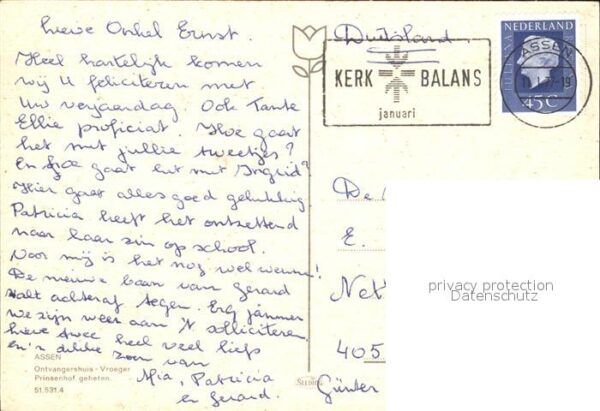 Lieve Onkel Ernst.
Heel hartelijk komen
wij U feliciteren met
Uw verjaardag. Ook Tante
Ellie proficiat. Hoe gaat
het met jullie tweetjes?
En hoe gaat het met Ingrid?
Hier gaat alles goed gelukkig.
Patricia heeft het ontzettend
naar haar zin op school.
Voor mij is het nog wel wennen!
De nieuwe baan van Gerard
valt achteraf tegen. Erg jammer
we zijn weer aan 't solliciteren.
Lieve twee heel veel liefs
en 'n dikke zoen van
Mia, Patricia
en Gerard.
ASSEN
Ontvangershuis - Vroeger
Prinsenhof geheten.
51.531.4
Duitsland
KERK BALANS
januari
NEDERLAND
JULIANA
45 C
ASSEN
De
E.
Net
405
Günter
privacy protection
Datenschutz